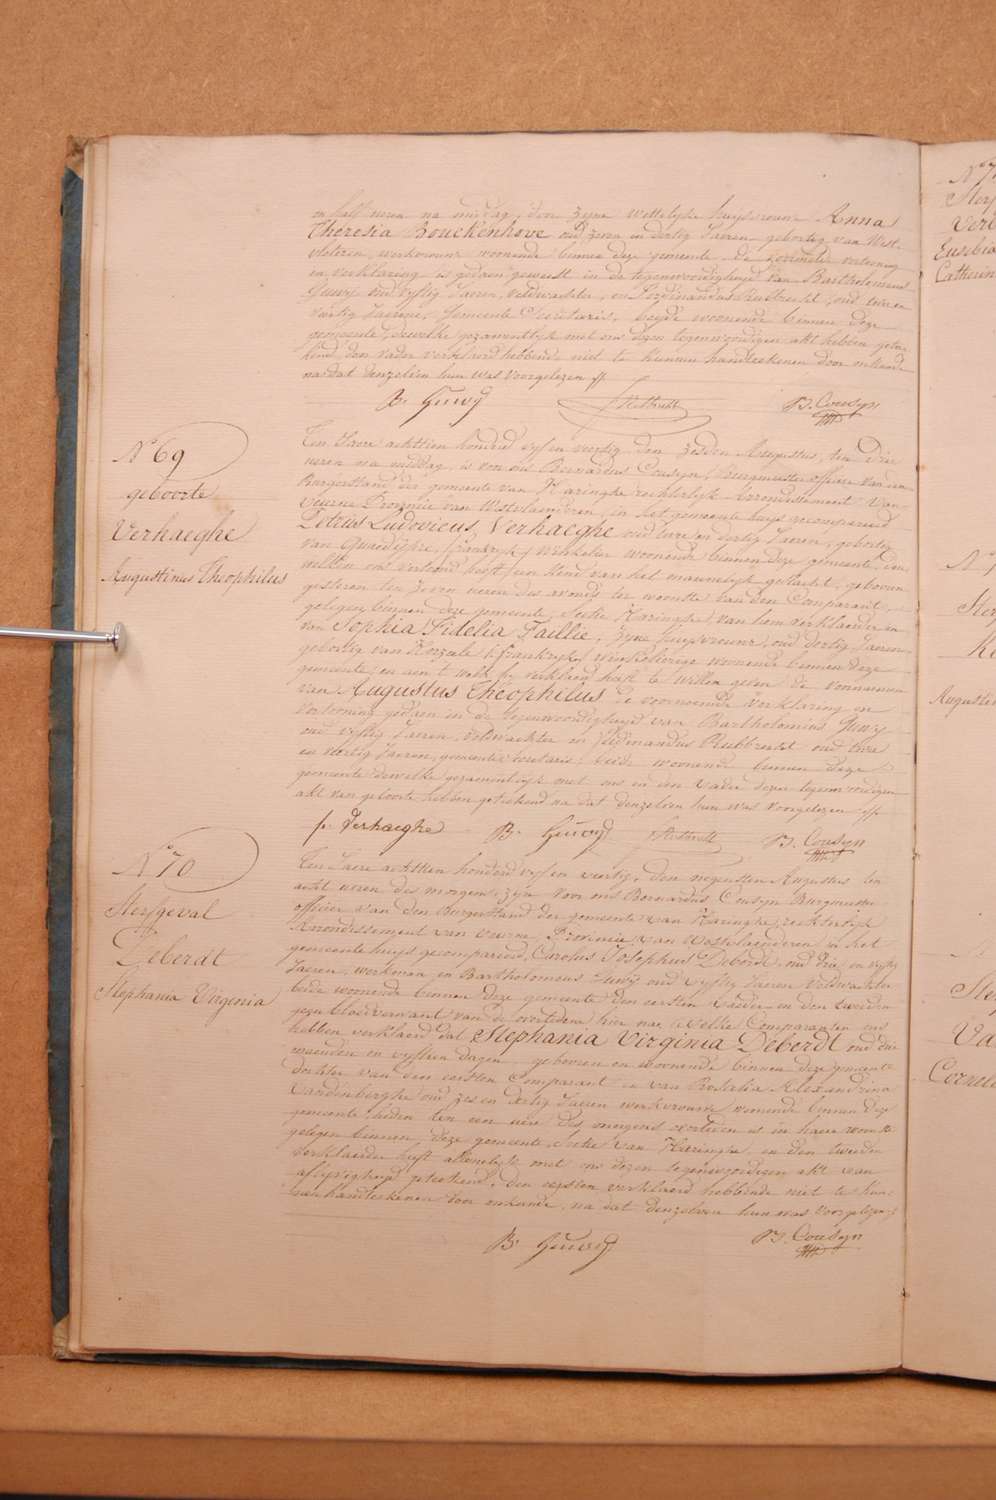 en half uren na middag, door zyne Wettelyke huysvrouw Anna
Theresia Bouckenhove oud zeven en dertig Jaeren geboortig van West-
vleteren, werkvrouw woonende binnen deze gemeente de voormelde vertooning
en verklaring is gedaen geweest in de tegenwoordigheyd van Bartholomeus
Huwÿ oud vyftig Jaeren, veldwachter, en Ferdinandus Rubbrecht, oud twee en
veertig Jaeren, Gemeente Secretaris, beyde woonende binnen deze
gemeente, dewelke gezamentlyk met ons dezen tegenwoordigen akt hebben getee-
kend, den vader verklaerd hebbende niet te kunnen handteekenen door onkunde
na dat denzelven hun was voorgelezen
B. Huwÿ Rubbrecht B. Cousyn
N° 69
geboorte
Verhaeghe
Augustinus Theophilus
Ten Jaere achttien honderd vyf en veertig den zesden Augustus, ten drie
uren na middag, is voor ons Bernardus Cousyn, Burgmeester officier van den
Burgerstand der gemeente van Haringhe rechterlyk arrondissement van
Veurne Provincie van Westvlaenderen, in het gemeente huys gecompareerd
Petrus Ludovicus Verhaeghe oud twee en dertig Jaeren, geboortig
van Quaedÿpre, (frankryk) Winkelier woonende binnen deze gemeente, den
welken ons vertoond heeft een kind van het mannelyk geslacht, geboren
gisteren ten zeven uren des avonds ter woonste van den Comparant,
gelegen binnen deze gemeente, Sectie Haringhe, van hem verklaerder en
van Sophia Fidelia Taillie, zyne huysvrouw, oud dertig Jaeren
geboortig van Killem (frankryk) winkelierige woonende binnen deze
gemeente, en aen 't welk hy verklaerd heeft te willen geven de voornaemen
van Augustus Theophilus de voornoemde verklaring en
vertooning gedaen in de tegenwoordigheyd van Bartholomeus Huwÿ
oud vyftig Jaeren, veldwachter en Ferdinandus Rubbrecht oud twee
en veertig Jaeren, gemeente secretaris, beide woonende binnen deze
gemeente dewelke gezamentlyk met ons en den vader dezen tegenwoordigen
akt van geboorte hebben geteekend na dat denzelven hun was voorgelezen
p. Verhaeghe B. Huwÿ Rubbrecht B. Cousyn
N° 70
Sterfgeval
Deberdt
Stephania Virgenia
Ten Jaere achttien honderd vyf en veertig, den negensten Augustus ten
acht uren des morgens, zyn voor ons Bernardus Cousyn Burgmeester
officier van den Burgerstand der gemeente van Haringhe rechterlyk
Arrondissement van Veurne, Provincie van Westvlaenderen in het
gemeente huys gecompareerd, Carolus Josephus Deberdt, oud drie en vyftig
Jaeren, werkman en Bartholomeus Huwÿ oud vyftig Jaeren Veldwachter
beide woonende binnen deze gemeente den eersten vader en den tweeden
gezu bloedverwant van de overledene hier na, Welke Comparanten ons
hebben verklaerd dat Stephania Virginia Deberdt oud drie
maenden en vyftien dagen geboren en woonende binnen deze gemeente
dochter van den eersten Comparant en van Rosalia Alexandrina
Vandenberghe oud zes en dertig Jaeren werkvrouw woonende binnen deze
gemeente, heden ten een ure des morgens overleden is in haere woonste
gelegen binnen deze gemeente, Sectie van Haringhe, en den tweeden
verklaerder heeft alleenelyk met ons dezen tegenwoordigen akt van
aflyvigheyd geteekend, den eersten verklaerd hebbende niet te kun-
nen handteekenen door onkunde, na dat denzelven hun was voorgelezen
B. Huwÿ B. Cousyn
Eusebia
Catherin
Augustin
Cornel